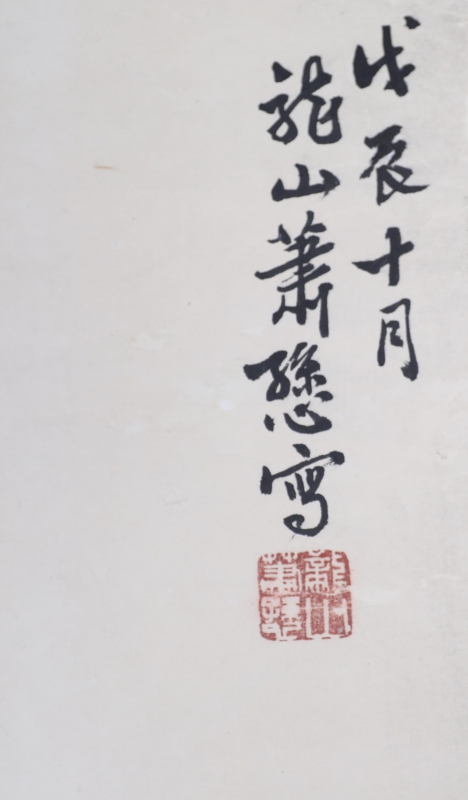 戊辰十月
龍山蕭愻寫
龍山
蕭